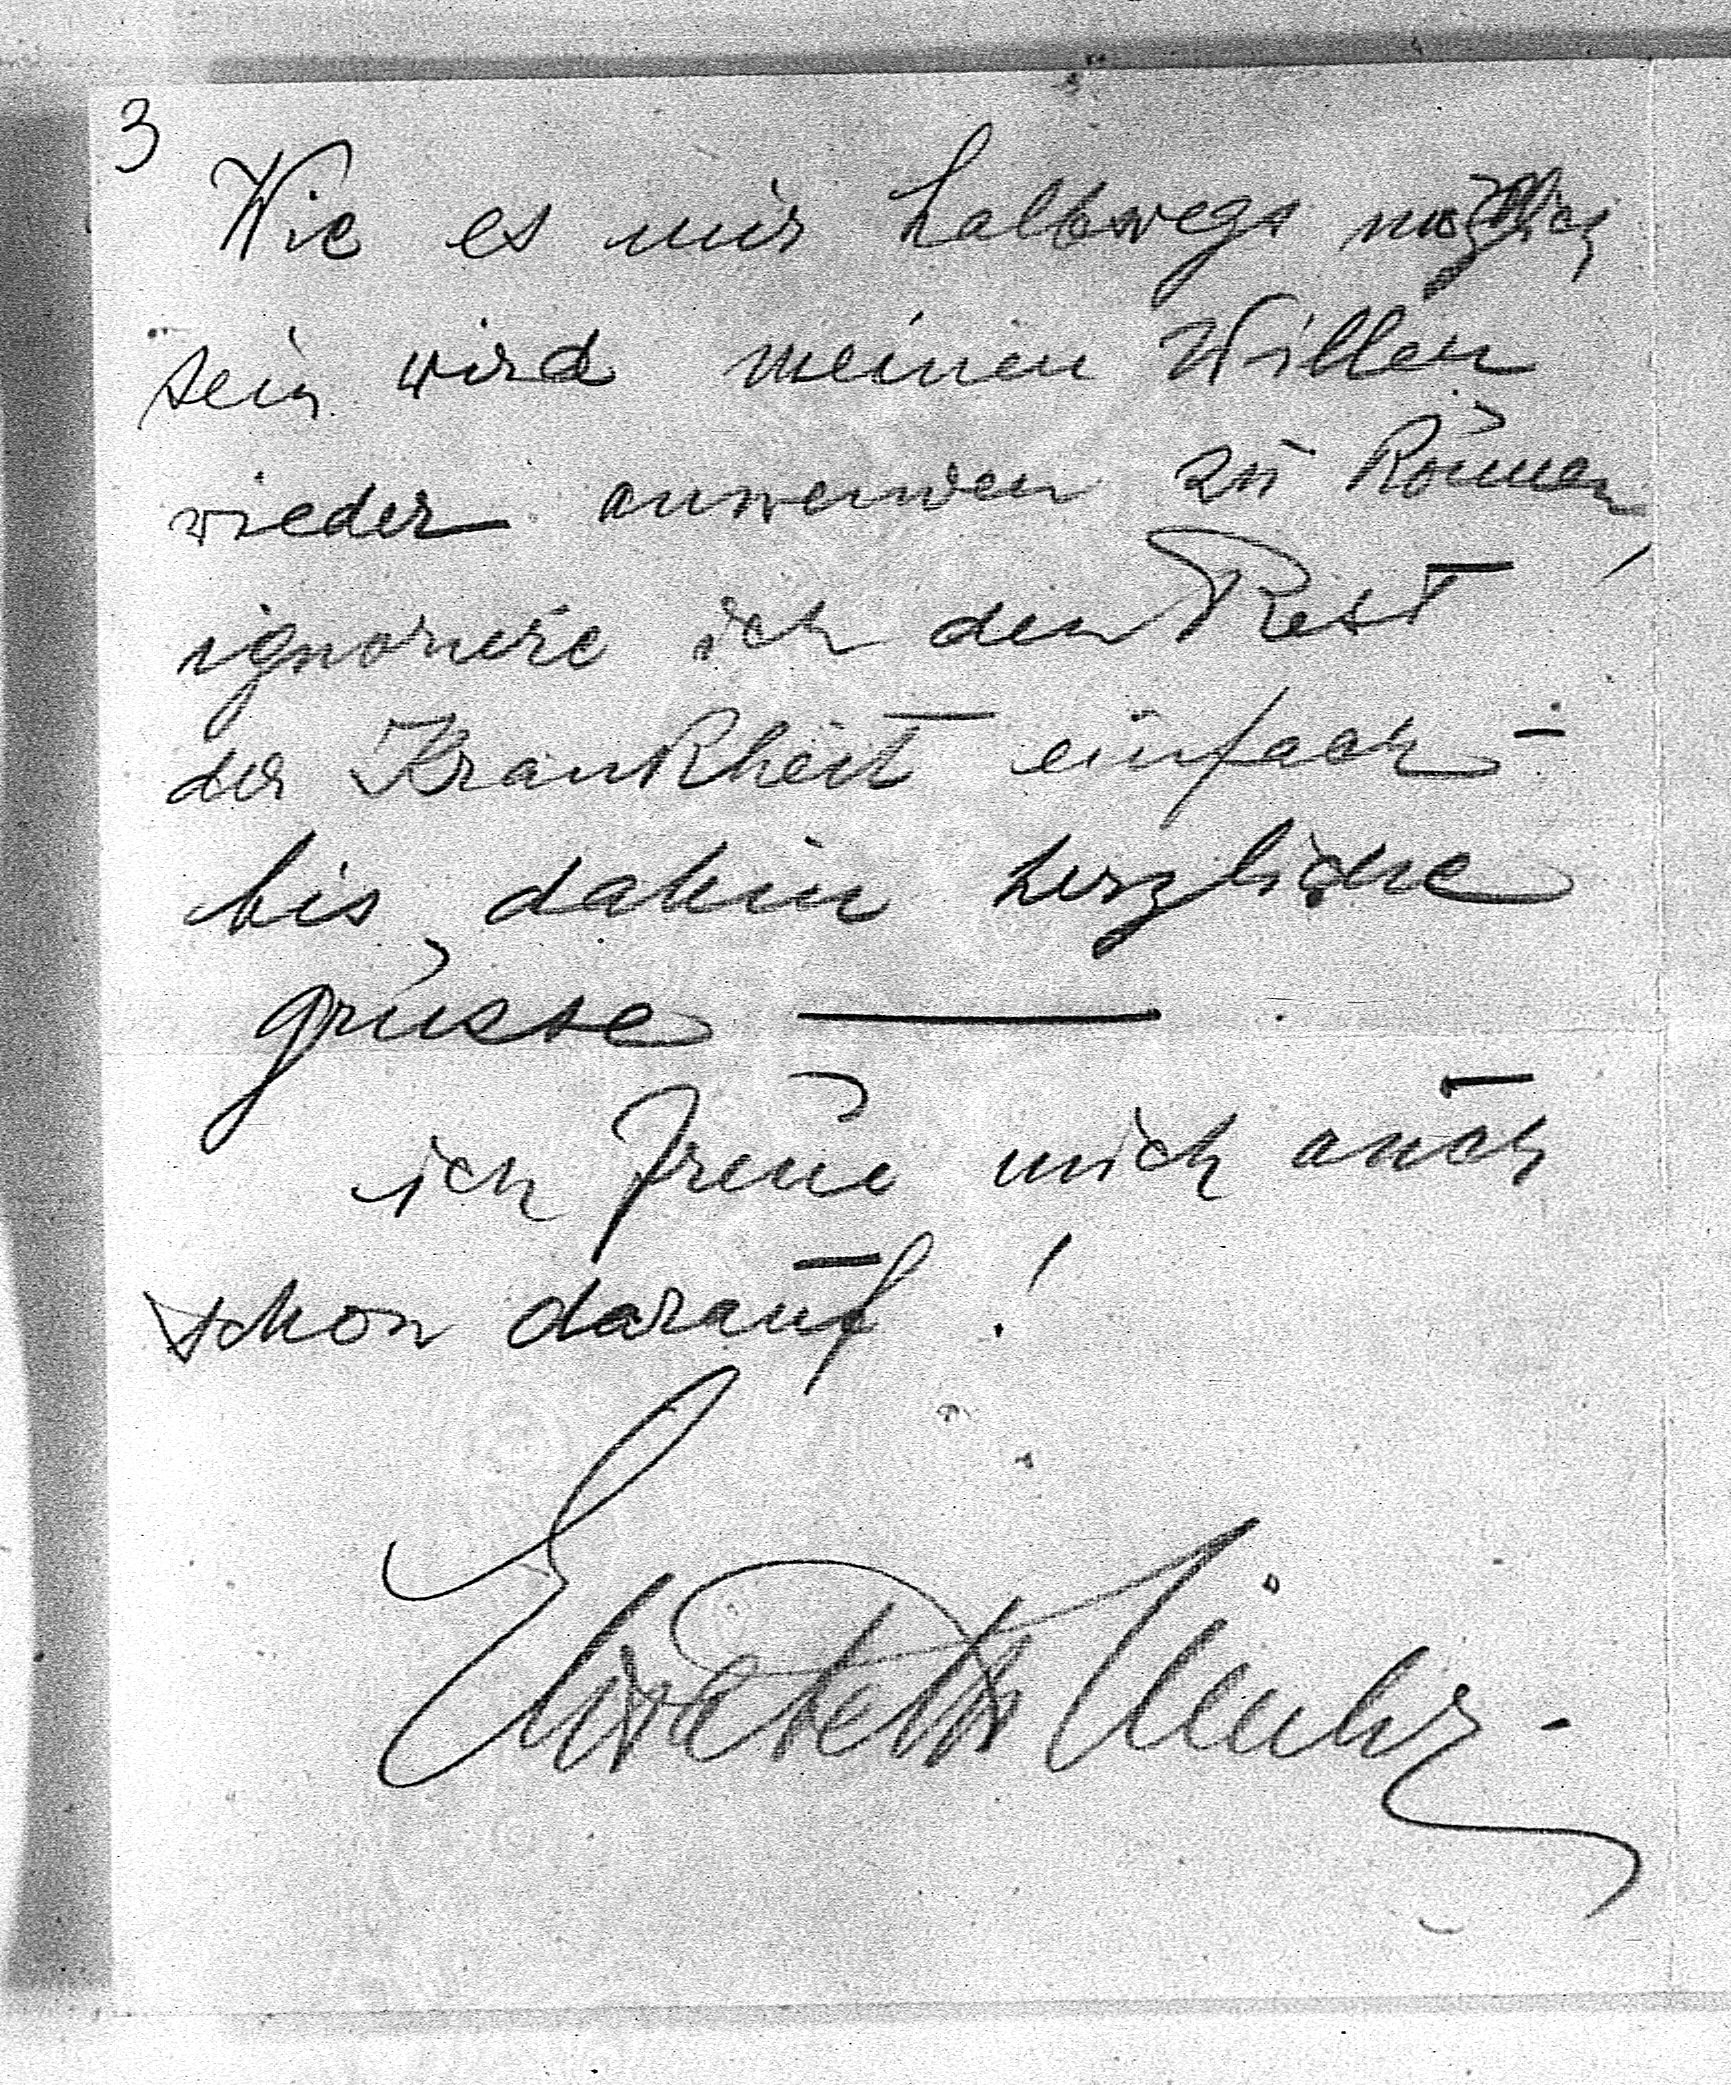 3
Wie es mir halbwegs möglich
sein wird meinen Willen
wieder anwenden zu können,
ignoriere ich den Rest
der Krankheit einfach –
bis dahin herzliche
grüsse —
ich freue mich auch
schon darauf!
Elisabeth